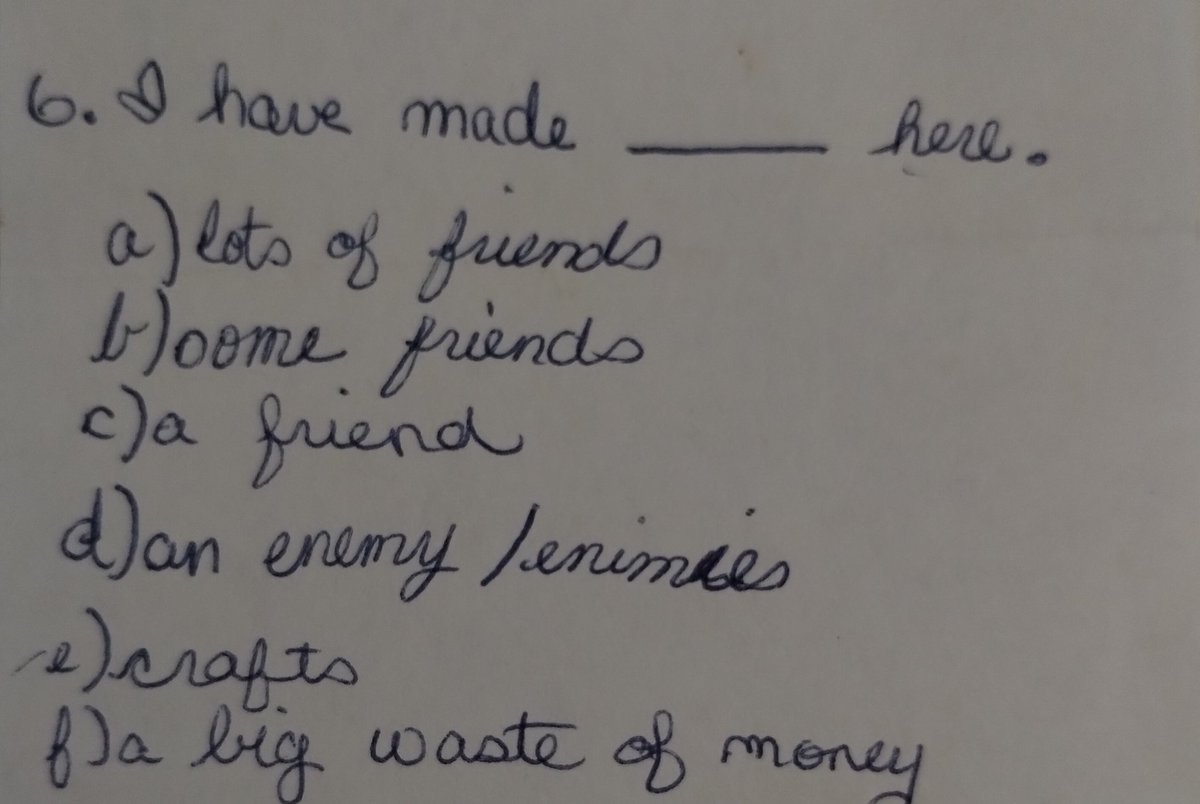 6. I have made ______ here.
a) lots of friends
b) some friends
c) a friend
d) an enemy / enimies
e) crafts
f) a big waste of money